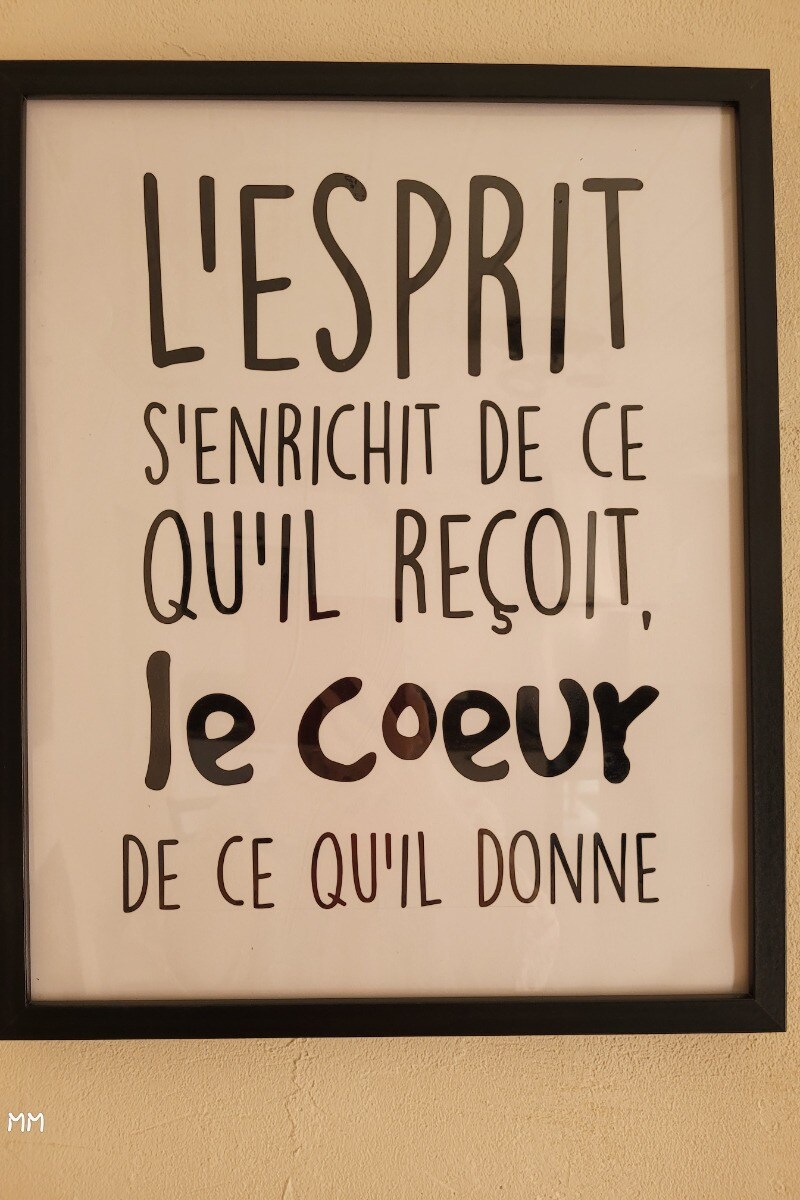 L'ESPRIT
S'ENRICHIT DE CE
QU'IL REÇOIT,
le coeur
DE CE QU'IL DONNE
MM